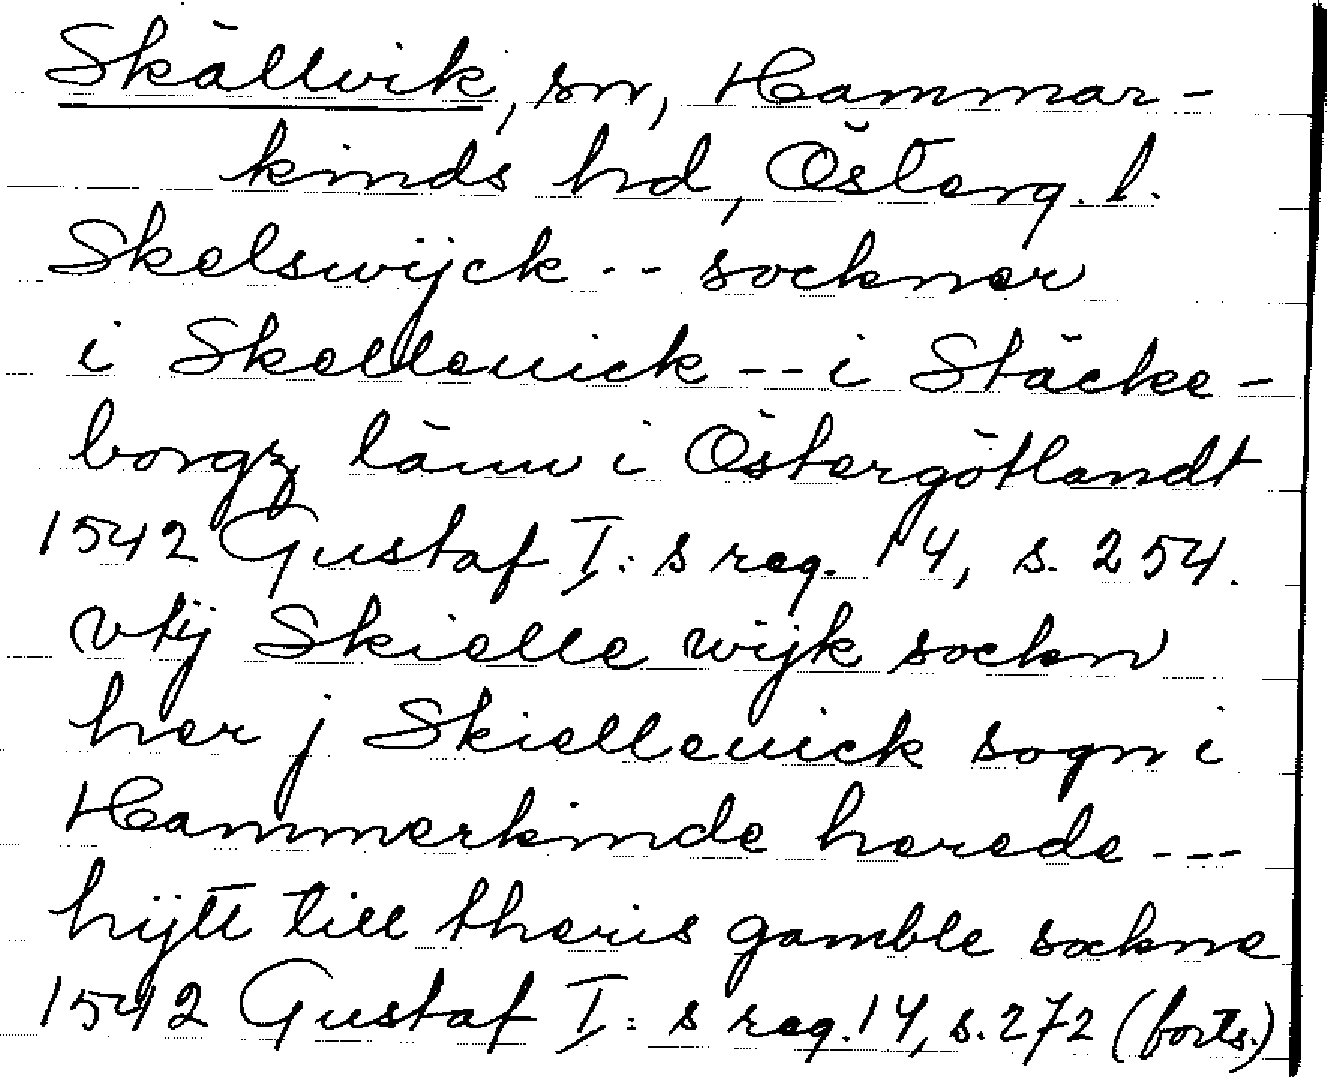 Skällvik, sn, Hammar-
kinds hd, Österg. l.
Skelswijck -- sockner
i Skelleuick -- i Stäcke-
borgz länn i Östergötlandt
1542 Gustaf I:s reg. 14, s. 254.
vtij Skielle wijk sockn
her j Skielleuick sogn i
Hammerkinde herede ---
hijtt till theris gamble sockne
1542 Gustaf I:s reg. 14, s. 272 (forts.)